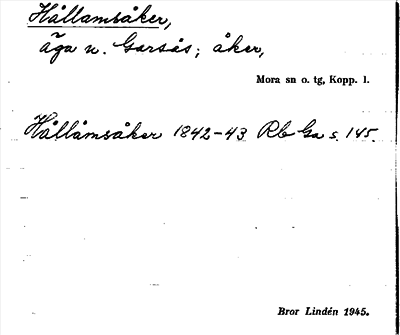 Hållamsåker,
äga u. Garsås; åker,
Mora sn o. tg, Kopp. l.
Hållåmsåker 1842-43 Rb Ga s. 145.
Bror Lindén 1945.